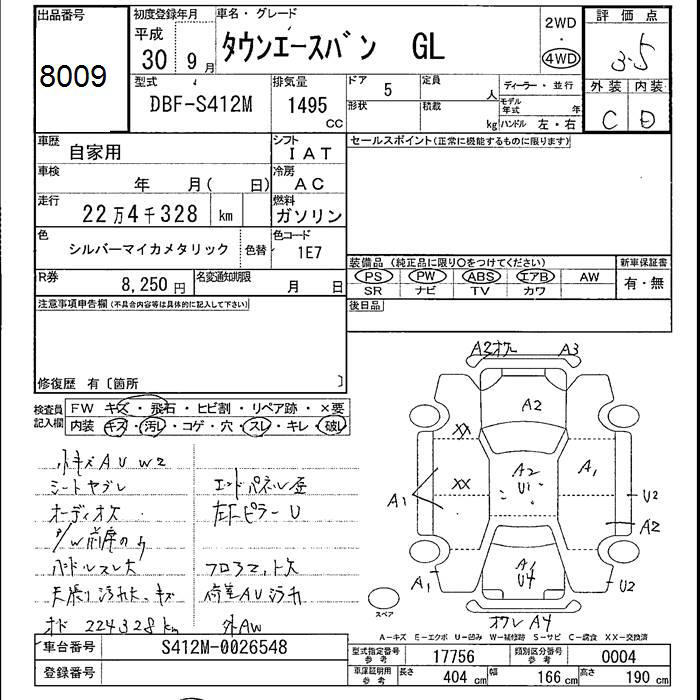 出品番号
8009
初度登録年月
平成
30 9月
車名・グレード
タウンエースバン GL
2WD
・
4WD
評価点
3.5
外装 内装
C D
型式
DBF-S412M
排気量
1495
CC
ドア
5
定員
人
形状
積載
kg
ディーラー・並行
モデル年式
年
ハンドル 左・右
車歴
自家用
シフト
IAT
車検
年 月( 日)
冷房
AC
走行
22万4千328 km
燃料
ガソリン
色
シルバーマイカメタリック
色替
色コード
1E7
R券
8,250円
名変通知期限
月 日
セールスポイント(正常に機能するものに限ります)
装備品 (純正品に限り○をつけてください)
PS PW ABS エアB AW
SR ナビ TV カワ
新車保証書
有・無
後日品
注意事項申告欄(不具合内容等は具体的に記入して下さい)
修復歴 有〔箇所 〕
検査員記入欄
FW キズ・飛石・ヒビ割・リペア跡・×要
内装 キズ・汚レ・コゲ・穴・スレ・キレ・破レ
小キズ A U W2
シートヤブレ
エンドパネル歪
オーディオ欠
左下ピラーU
P/W前席のう
ハンドルスレ大
フロアマット欠
天張り汚れ大、キズ
荷室AU汚れ
オド 224328km
外AW
A2 オクレ
A3
A2
XX
XX
A2
U1
A1
A1
U2
A2
A1
A1
U4
U2
オクレ A4
スペア
A-キズ E-エクボ U-凹み W-補修跡 S-サビ C-腐食 XX-交換済
車台番号
S412M-0026548
登録番号
型式指定番号
参考
17756
類別区分番号
参考
0004
車庫証明用
参考
長さ
404 cm
幅
166 cm
高さ
190 cm